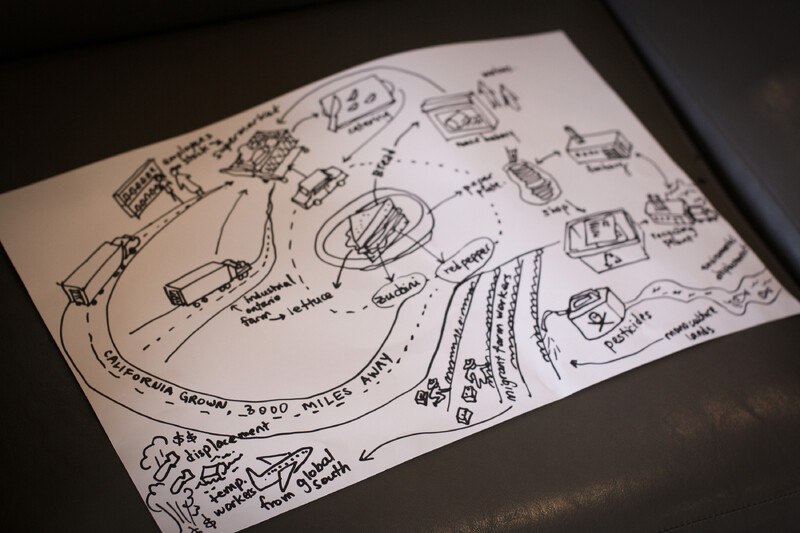 catering
supermarket
employees
bread
paper
plate
shop!
bakery
recycling
plant
industrial
ontario
farm → lettuce
zuchini
red pepper
migrant farm workers
pesticides
lands
CALIFORNIA GROWN, 3000 MILES AWAY
$$
displacement
temp.
workers
from global
south